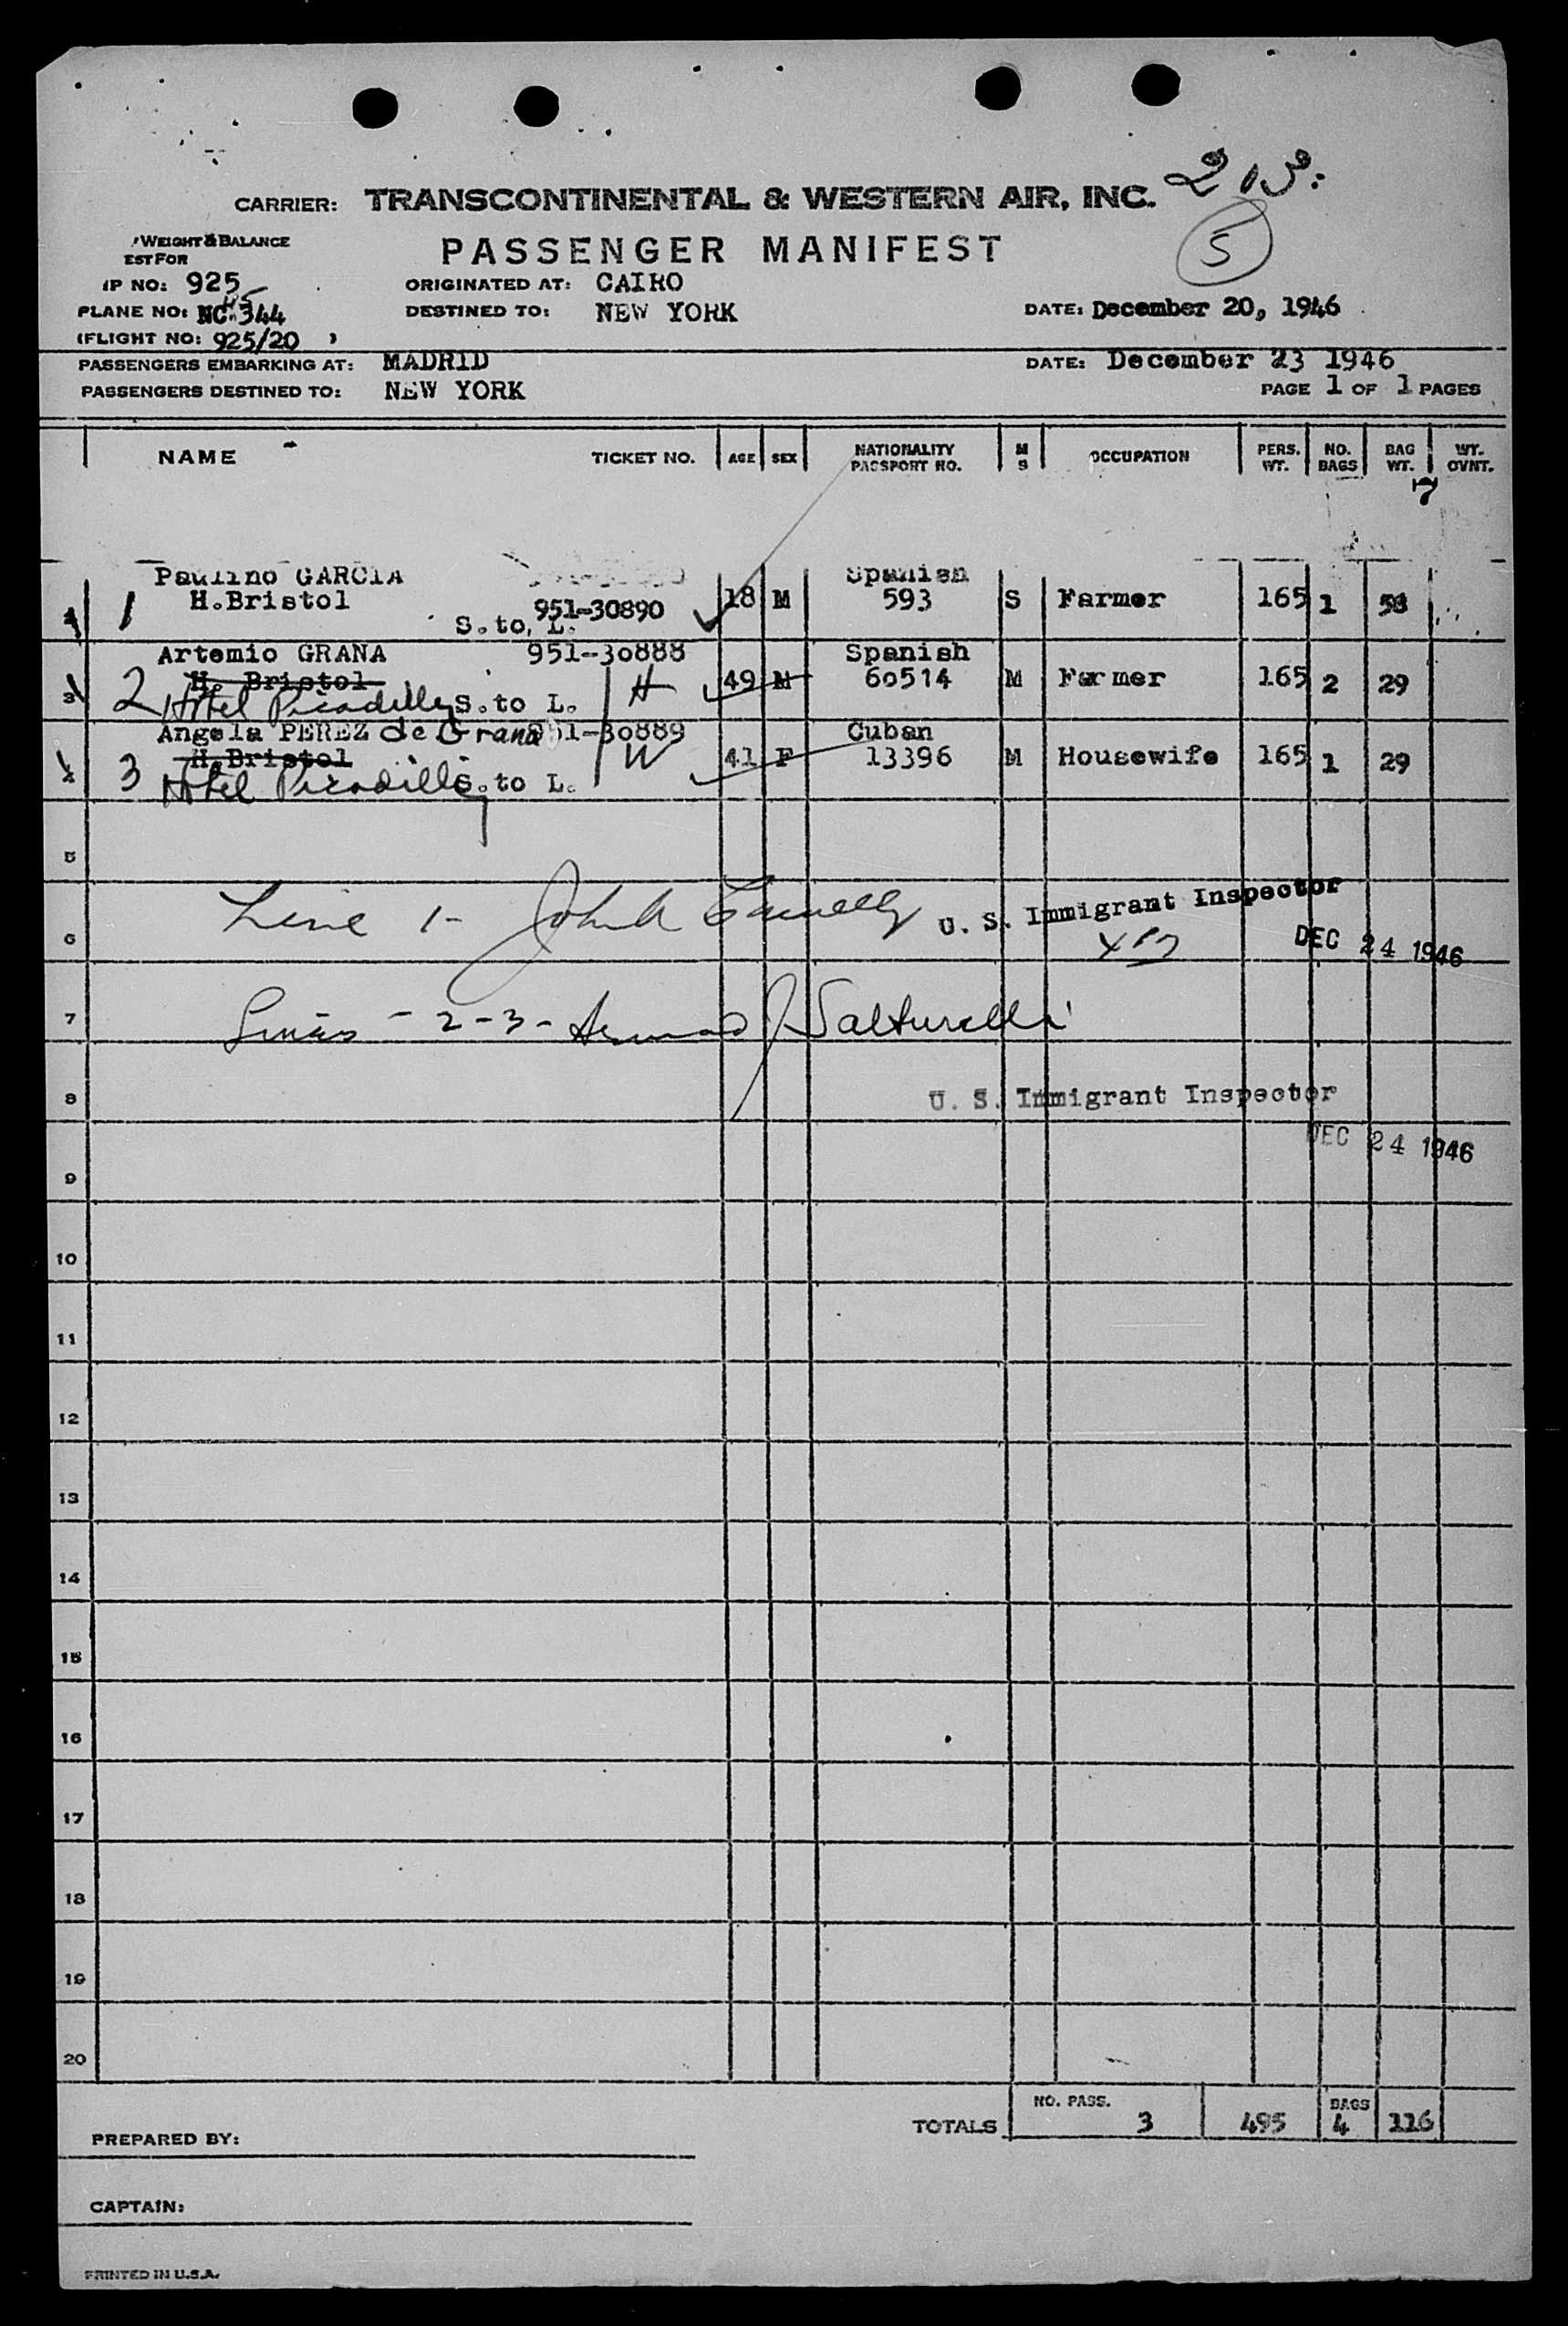 213:
CARRIER: TRANSCONTINENTAL & WESTERN AIR, INC.
5
WEIGHT & BALANCE
EST FOR
PASSENGER MANIFEST
IP NO: 925
ORIGINATED AT: CAIRO
PLANE NO: NC 344
DESTINED TO: NEW YORK
DATE: December 20, 1946
(FLIGHT NO: 925/20 )
PASSENGERS EMBARKING AT: MADRID
DATE: December 23 1946
PASSENGERS DESTINED TO: NEW YORK
PAGE 1 OF 1 PAGES
NAME TICKET NO. AGE SEX NATIONALITY PASSPORT NO. M S OCCUPATION PERS. WT. NO. BAGS BAG WT. WT. OVNT.
7
Paulino GARCIA Spanish
1 H.Bristol 951-30890 18 M 593 S Farmer 165 1 58
S. to L.
Artemio GRANA 951-30888 Spanish
3 2 H. Bristol H 49 M 60514 M Farmer 165 2 29
Hotel Picadilly S. to L.
Angela PEREZ de Grana 951-30889 Cuban
3 H.Bristol W 41 F 13396 M Housewife 165 1 29
Hotel Picadilly S. to L.
5
Line 1- John Connelly U. S. Immigrant Inspector
6
DEC 24 1946
7
Lines - 2-3- J Salturelli
8
U. S. Immigrant Inspector
DEC 24 1946
9
10
11
12
13
14
15
16
17
18
19
20
TOTALS NO. PASS. 3 495 BAGS 4 116
PREPARED BY:
CAPTAIN:
PRINTED IN U.S.A.